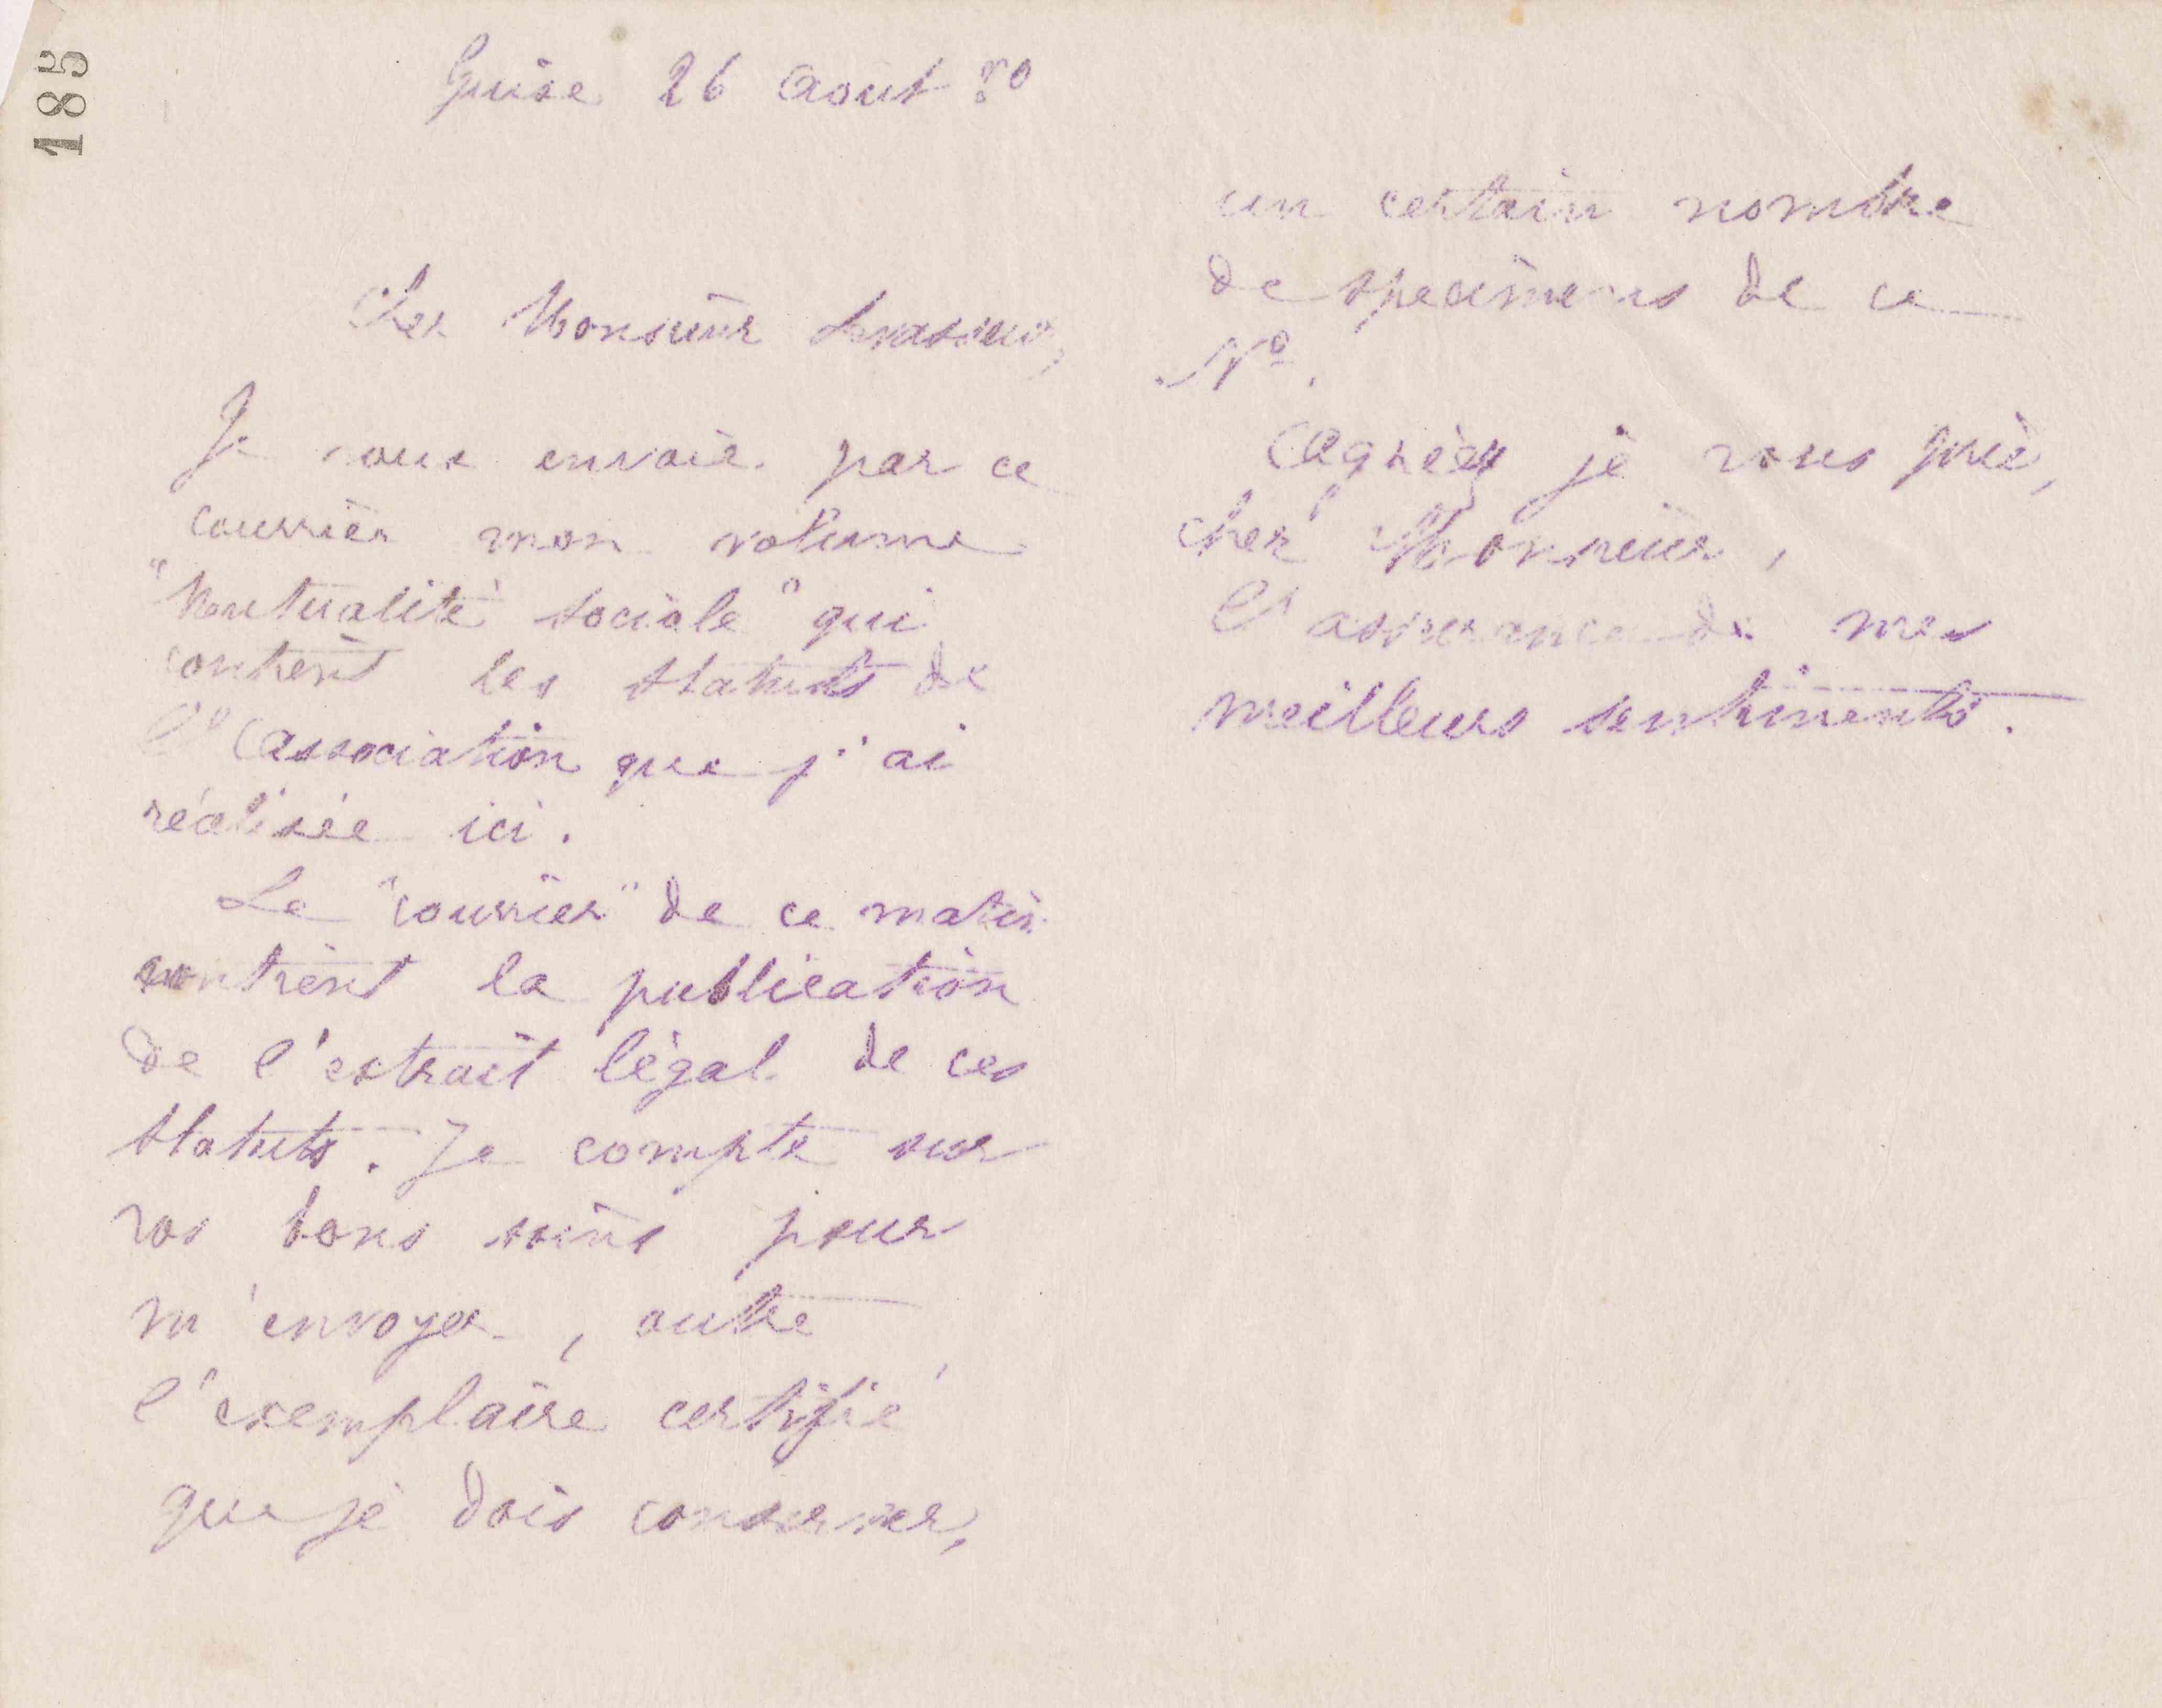 185
Guise 26 Aout 80
Cher Monsieur Levasseur,
Je vous envoie par ce
courrier mon volume
"Mutualité sociale" qui
contient les statuts de
l'Association que j'ai
réalisée ici.
Le "courrier" de ce matin
contient la publication
de l'extrait légal de ces
statuts. Je compte sur
vos bons soins pour
m'envoyer, outre
l'exemplaire certifié
que je dois conserver,
un certain nombre
de specimens de ce
No.
Agréez je vous prie,
cher Monsieur,
l'assurance de mes
meilleurs sentiments.